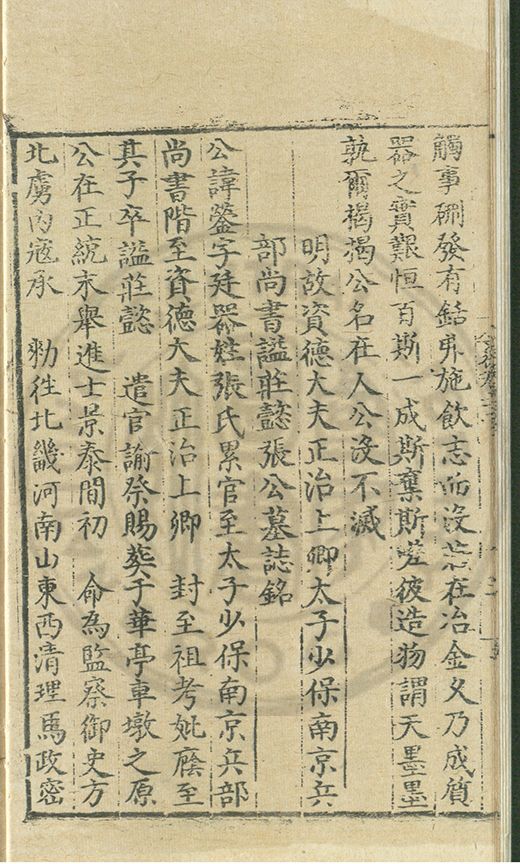 觸事硎發有銛弗施飲志而沒芒在冶金久乃成質
器之實艱恒百斯一成斯棄斯嗟彼造物謂天墨墨
孰爾褐揭公名在人公沒不滅
明故資德大夫正治上卿太子少保南京兵
部尚書謚莊懿張公墓誌銘
公諱鎣字廷器姓張氏累官至太子少保南京兵部
尚書階至資德大夫正治上卿 封至祖考妣廕至
其子卒謚莊懿 遣官諭祭賜葬于華亭車墩之原
公在正統末舉進士景泰間初 命為監察御史方
北虜內寇承 勑往北畿河南山東西清理馬政密